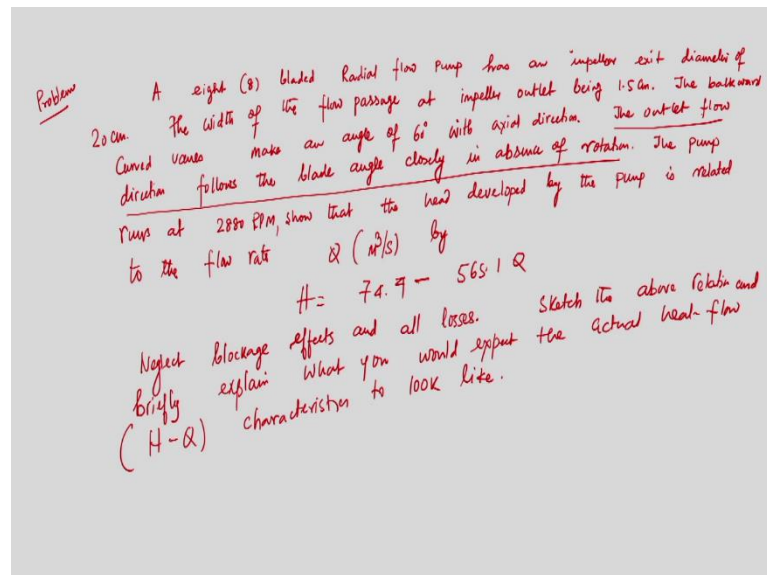 Problem A eight (8) bladed Radial flow pump has an impeller exit diameter of
20 cm. The width of the flow passage at impeller outlet being 1.5 cm. The backward
Curved vanes make an angle of 60° with axial direction. The outlet flow
direction follows the blade angle closely in absence of rotation. The pump
runs at 2880 RPM, show that the head developed by the pump is related
to the flow rate Q (m³/s) by
H = 74.9 - 565.1 Q
Neglect blockage effects and all losses. Sketch the above relation and
briefly explain what you would expect the actual head-flow
(H-Q) characteristics to look like.